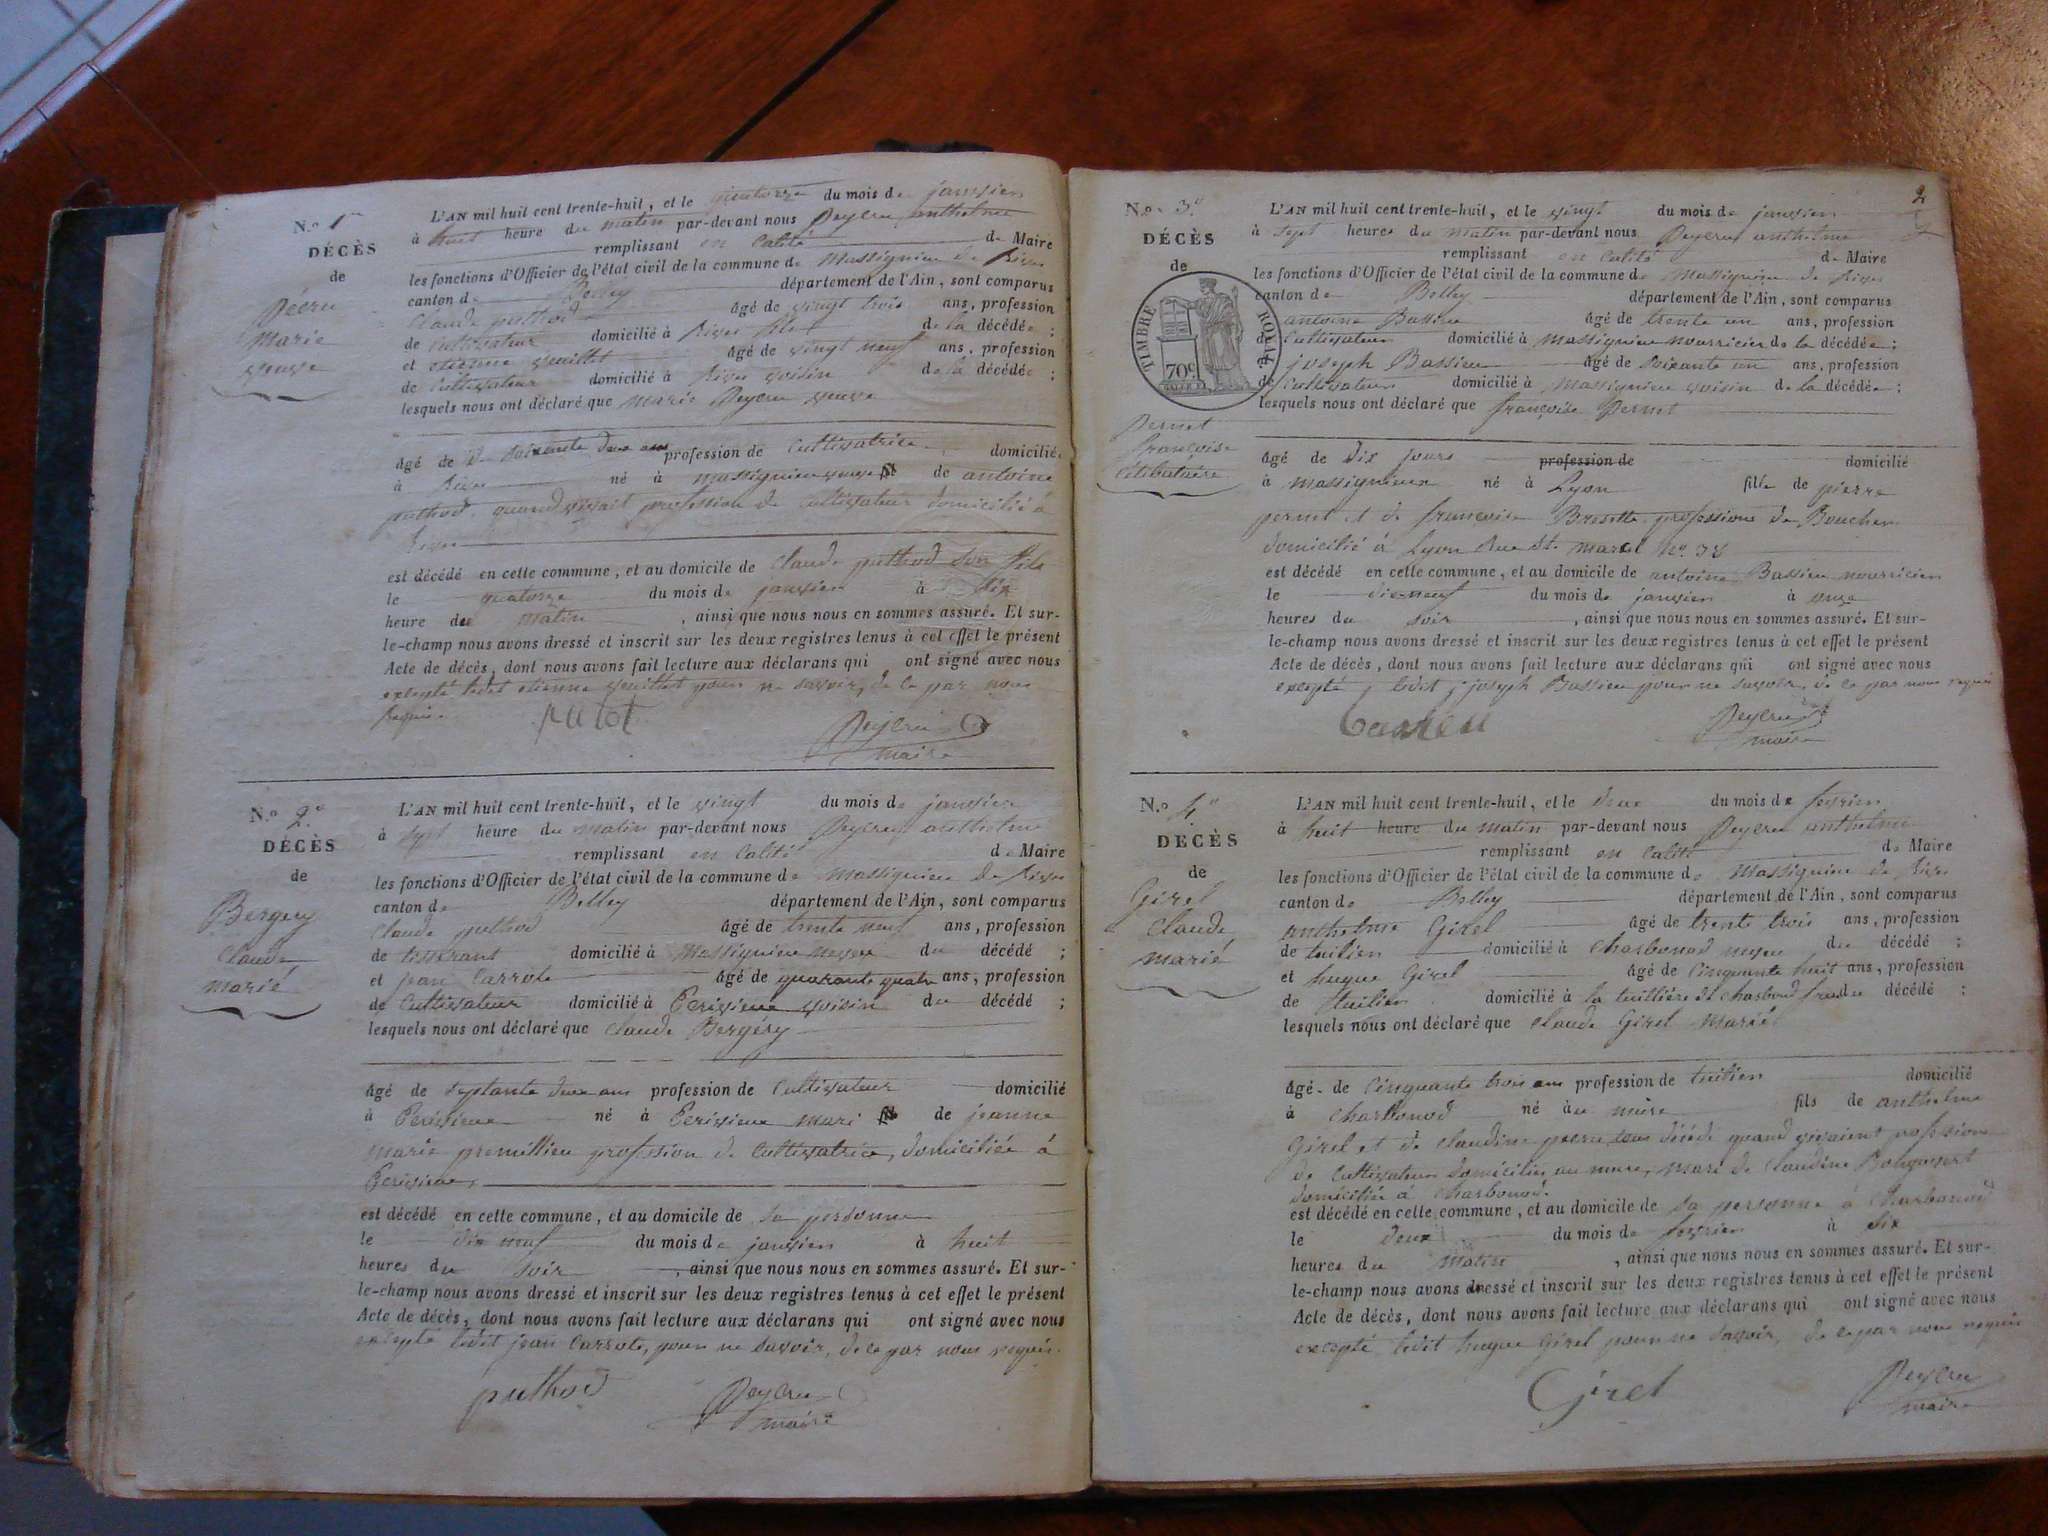 N.o 1er
DÉCÈS
de
Peeru
Marie
veuve
L'AN mil huit cent trente-huit, et le quatorze du mois de janvier
à huit heure du matin par-devant nous Peyeru anthelme
remplissant en Calité de Maire
les fonctions d'Officier de l'état civil de la commune de Massignieu de Rives
canton de Belley département de l'Ain, sont comparus
Claude puthod âgé de vingt trois ans, profession
de cultivateur domicilié à Rives fils de la décédée ;
et etienne veuillet âgé de vingt neuf ans, profession
de Cultivateur domicilié à Rives voisin de la décédée ;
lesquels nous ont déclaré que Marie Peyeru veuve
âgé de soixante deux ans profession de Cultivatrice domiciliée
à Rives né à massignieu veuve de antoine
puthod quand vivait profession de Cultivateur domicilié à
Rives
est décédé en cette commune, et au domicile de Claude puthod son fils
le quatorze du mois de janvier à six
heure de matin, ainsi que nous nous en sommes assuré. Et sur-
le-champ nous avons dressé et inscrit sur les deux registres tenus à cet effet le présent
Acte de décès, dont nous avons fait lecture aux déclarans qui ont signé avec nous
excepté ledit etienne veuillet pour ne savoir, de ce par nous
Requis.
Putot
Peyeru
maire
N.o 2e
DÉCÈS
de
Bergery
Claude
marié
L'AN mil huit cent trente-huit, et le vingt du mois de janvier
à sept heure du matin par-devant nous Peyeru anthelme
remplissant en Calité de Maire
les fonctions d'Officier de l'état civil de la commune de Massignieu de Rives
canton de Belley département de l'Ain, sont comparus
Claude puthod âgé de trente neuf ans, profession
de tisserant domicilié à Massignieu du décédé ;
et jean Carrote âgé de quarante quatre ans, profession
de Cultivateur domicilié à Perisieux voisin du décédé ;
lesquels nous ont déclaré que Claude Bergéry
âgé de septante deux ans profession de Cultivateur domicilié
à Perisieux né à Perisieux mari de jeanne
marie premillieu profession de Cultivatrice, domiciliée à
Perisieux,
est décédé en cette commune, et au domicile de sa personne
le dix neuf du mois de janvier à huit
heures du soir, ainsi que nous nous en sommes assuré. Et sur-
le-champ nous avons dressé et inscrit sur les deux registres tenus à cet effet le présent
Acte de décès, dont nous avons fait lecture aux déclarans qui ont signé avec nous
excepté ledit jean Carrote, pour ne savoir, de ce par nous requis.
puthod
Peyeru
maire
2
N.o 3e
DÉCÈS
de
TIMBRE ROYAL
70c
Pernet
françoise
Célibataire
L'AN mil huit cent trente-huit, et le vingt du mois de janvier
à sept heures du matin par-devant nous Peyeru anthelme
remplissant en Calité de Maire
les fonctions d'Officier de l'état civil de la commune de Massignieu de Rives
canton de Belley département de l'Ain, sont comparus
antoine Bassieu âgé de trente un ans, profession
de Cultivateur domicilié à Massignieu nourricier de la décédée ;
joseph Bassieu âgé de soixante un ans, profession
de Cultivateur domicilié à Massignieu voisin de la décédée ;
lesquels nous ont déclaré que françoise Pernet
âgé de dix jours profession de domicilié
à Massignieux né à Lyon fille de pierre
pernet et de francoise professions de Boucher
domicilié à Lyon Rue St. marcel No. 38
est décédé en cette commune, et au domicile de antoine Bassieu nourricier
le dixneuf du mois de janvier à onze
heures du soir, ainsi que nous nous en sommes assuré. Et sur-
le-champ nous avons dressé et inscrit sur les deux registres tenus à cet effet le présent
Acte de décès, dont nous avons fait lecture aux déclarans qui ont signé avec nous
excepté ledit joseph Bassieu pour ne savoir, de ce par nous requis
Peyeru
maire
N.o 4e
DÉCÈS
de
Girel
Claude
marié
L'AN mil huit cent trente-huit, et le deux du mois de fevrier
à huit heure du matin par-devant nous Peyeru anthelme
remplissant en Calité de Maire
les fonctions d'Officier de l'état civil de la commune de Massignieu de Rives
canton de Belley département de l'Ain, sont comparus
anthelme Girel âgé de trente trois ans, profession
de tuilier domicilié à Charbonod du décédé ;
et hugue Girel âgé de Cinquante huit ans, profession
de tuilier domicilié à la tuillière de du décédé ;
lesquels nous ont déclaré que Claude Girel Marié
âgé de Cinquante trois ans profession de tuilier domicilié
à Charbonod né au mure fils de anthelme
Girel et de Claudine tous décédé quand vivaient profession
de Cultivateur domicilier au mure, mari de Claudine
domiciliée à Charbonod.
est décédé en cette commune, et au domicile de sa personne à Charbonod
le deux du mois de fevrier à six
heures du matin, ainsi que nous nous en sommes assuré. Et sur-
le-champ nous avons dressé et inscrit sur les deux registres tenus à cet effet le présent
Acte de décès, dont nous avons fait lecture aux déclarans qui ont signé avec nous
excepté ledit hugue Girel pour ne savoir, de ce par nous requis
Girel
Peyeru
maire